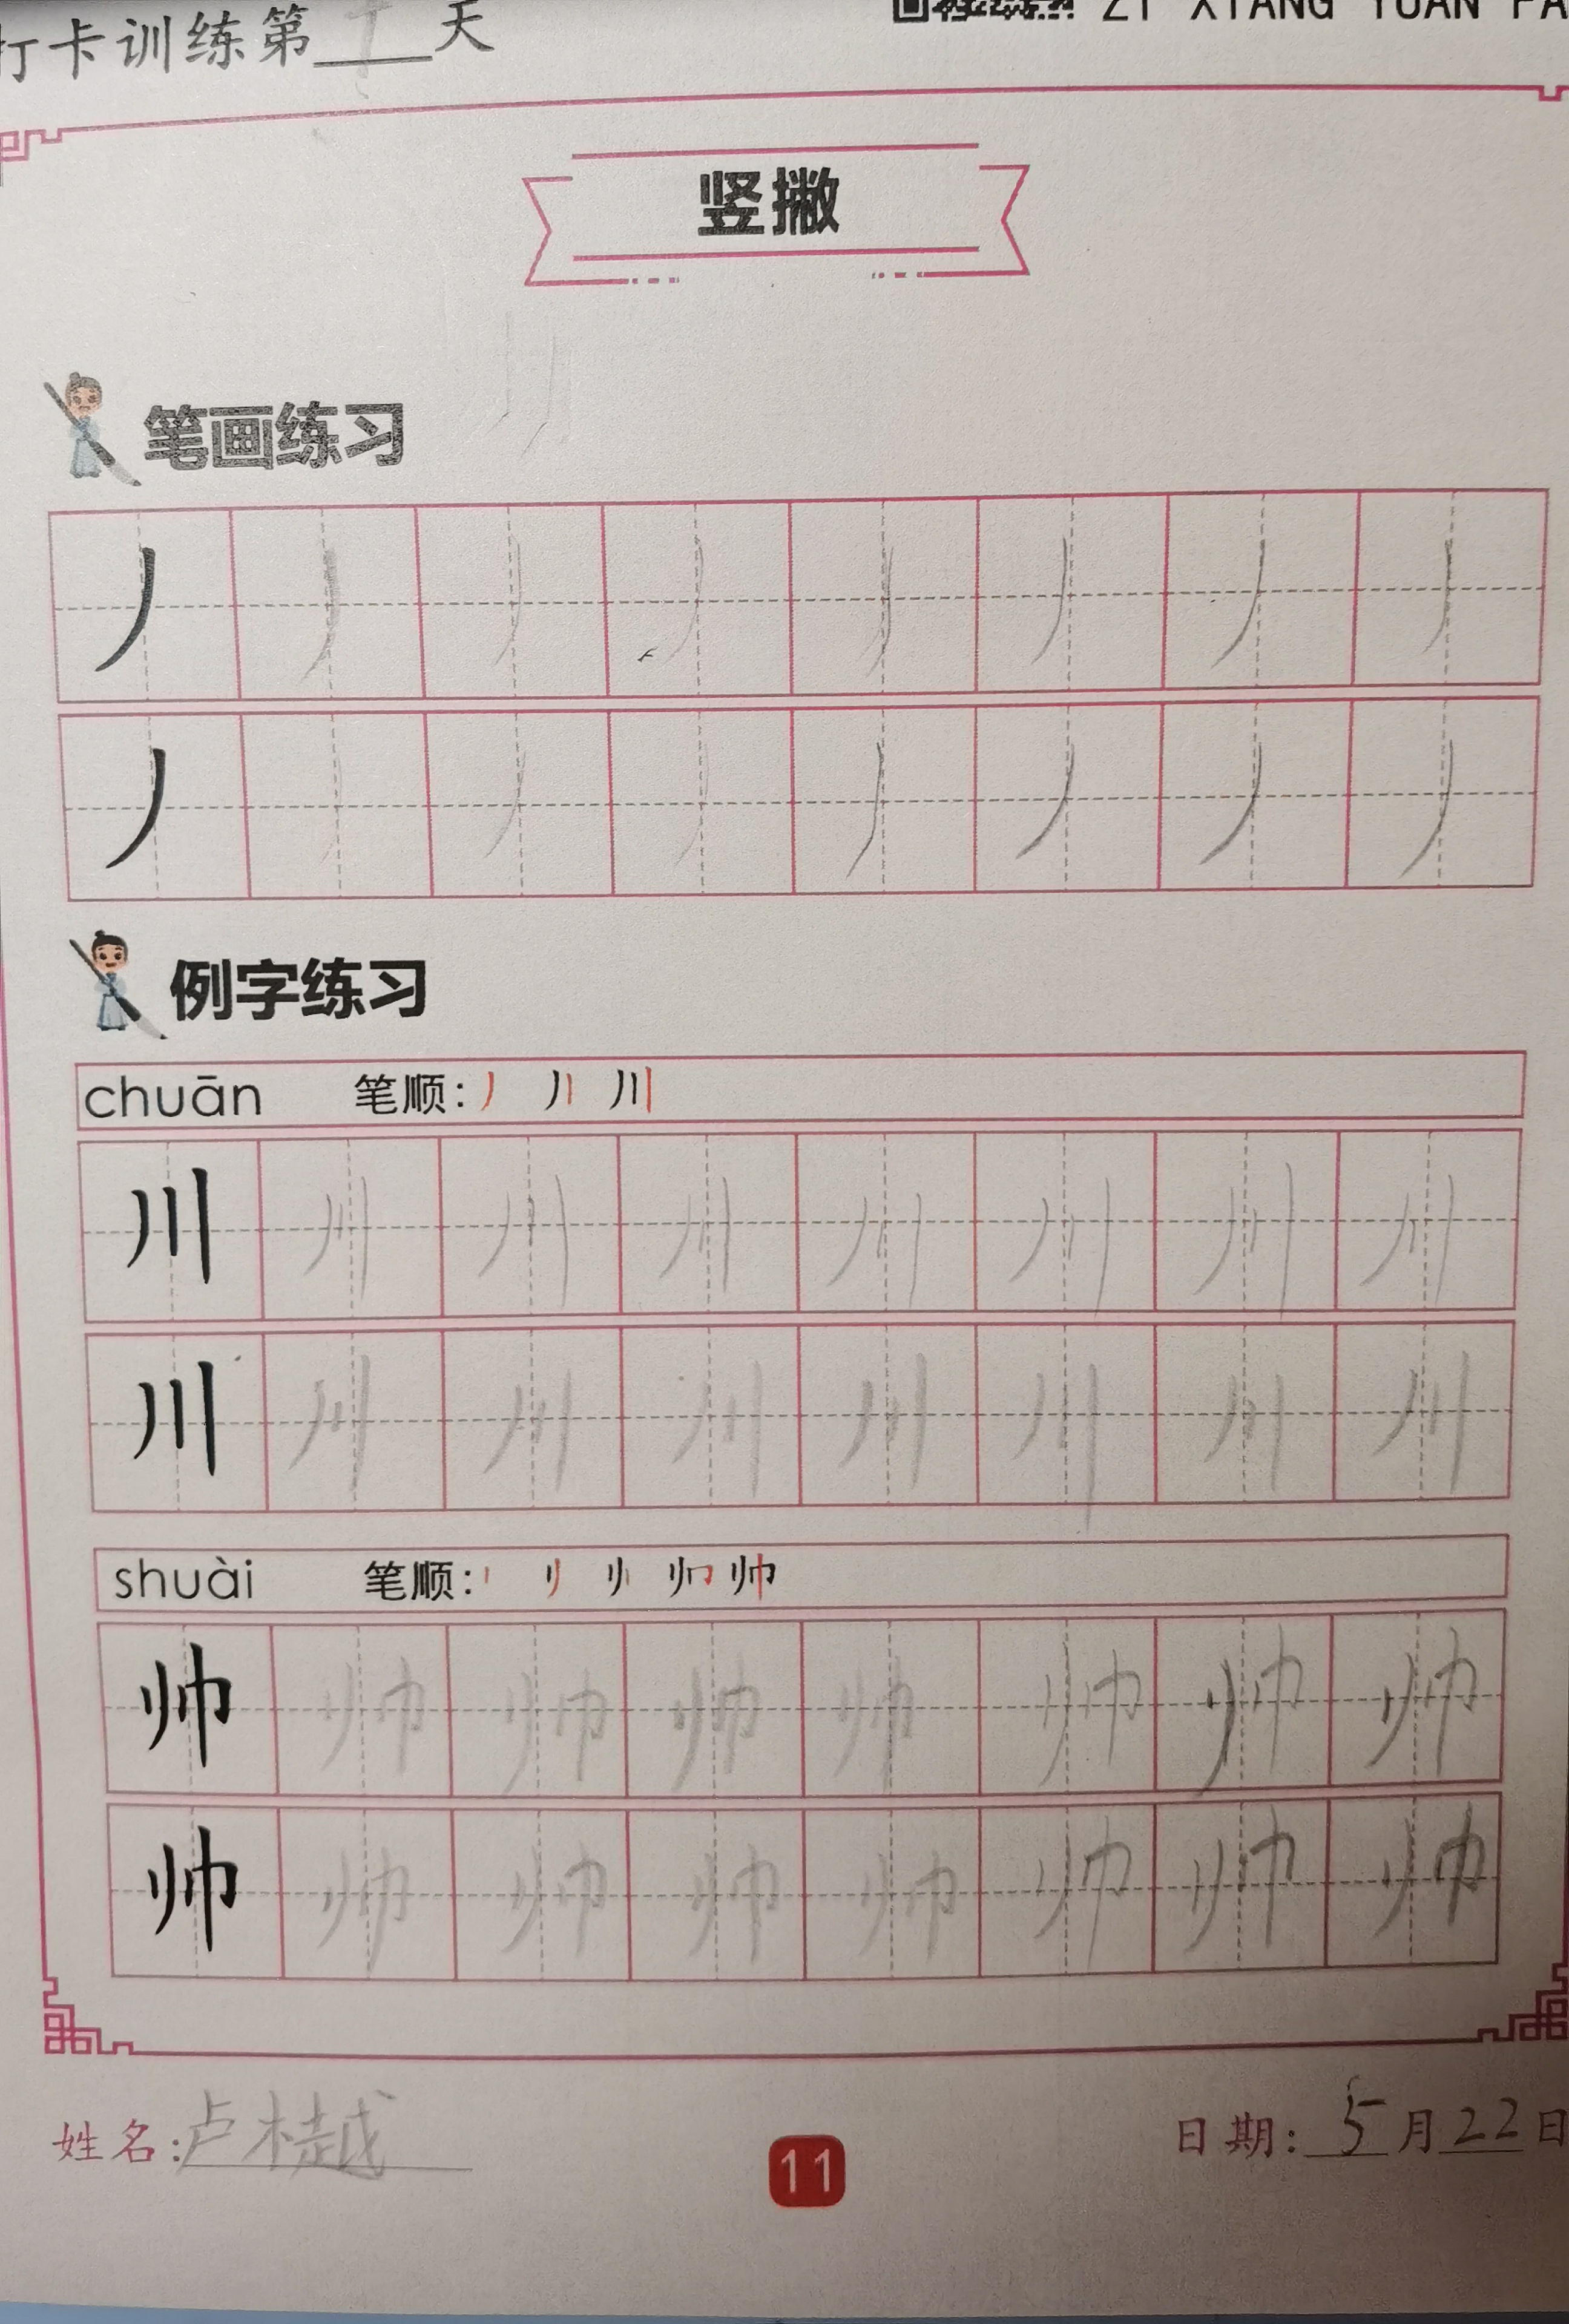 打卡训练第 天
ZI XIANG YUAN FA
竖撇
笔画练习
丿
丿
例字练习
chuān 笔顺: 丿 川
川 川 川 川 川 川 川 川
川 川 川 川 川 川 川 川
shuài 笔顺: 帅
帅 帅 帅 帅 帅 帅 帅 帅
帅 帅 帅 帅 帅 帅 帅 帅
姓名: 卢 越
11
日期: 5月22日